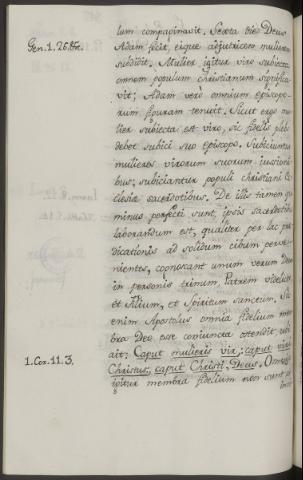 lum compaginavit. Sexta die Deus
Gen. 1. 26. &c.
Adam fecit, eique adjutricem mulierem
subdidit. Mulier igitur viro subiecta
omnem populum Christianum significa
vit; Adam verò omnium Episcopo-
rum figuram tenuit. Sicut ergo mu
lier subiecta est viro, sic fidelis plebs
debet subici suo Episcopo. Subiciuntur
mulieres virorum suorum jussioni
bus; subiciantur populi Christiani Ec
clesiæ sacerdotibus. De illis tamen qui
minus perfecti sunt, ipsis sacerdotibus
laborandum est, qualiter per lac præ
dicationis ad solidum cibum perve-
nientes, cognoscant unum verum Deum
in personis trinum, Patrem videlicet
et Filium, et Spiritum Sanctum. Sic
enim Apostolus omnia fidelium mem
bra Deo esse coniuncta ostendit, ubi
ait: Caput mulieris vir; caput viri
1. Cor. 11. 3.
Christus; caput Christi, Deus. Omnes
igitur membra fidelium